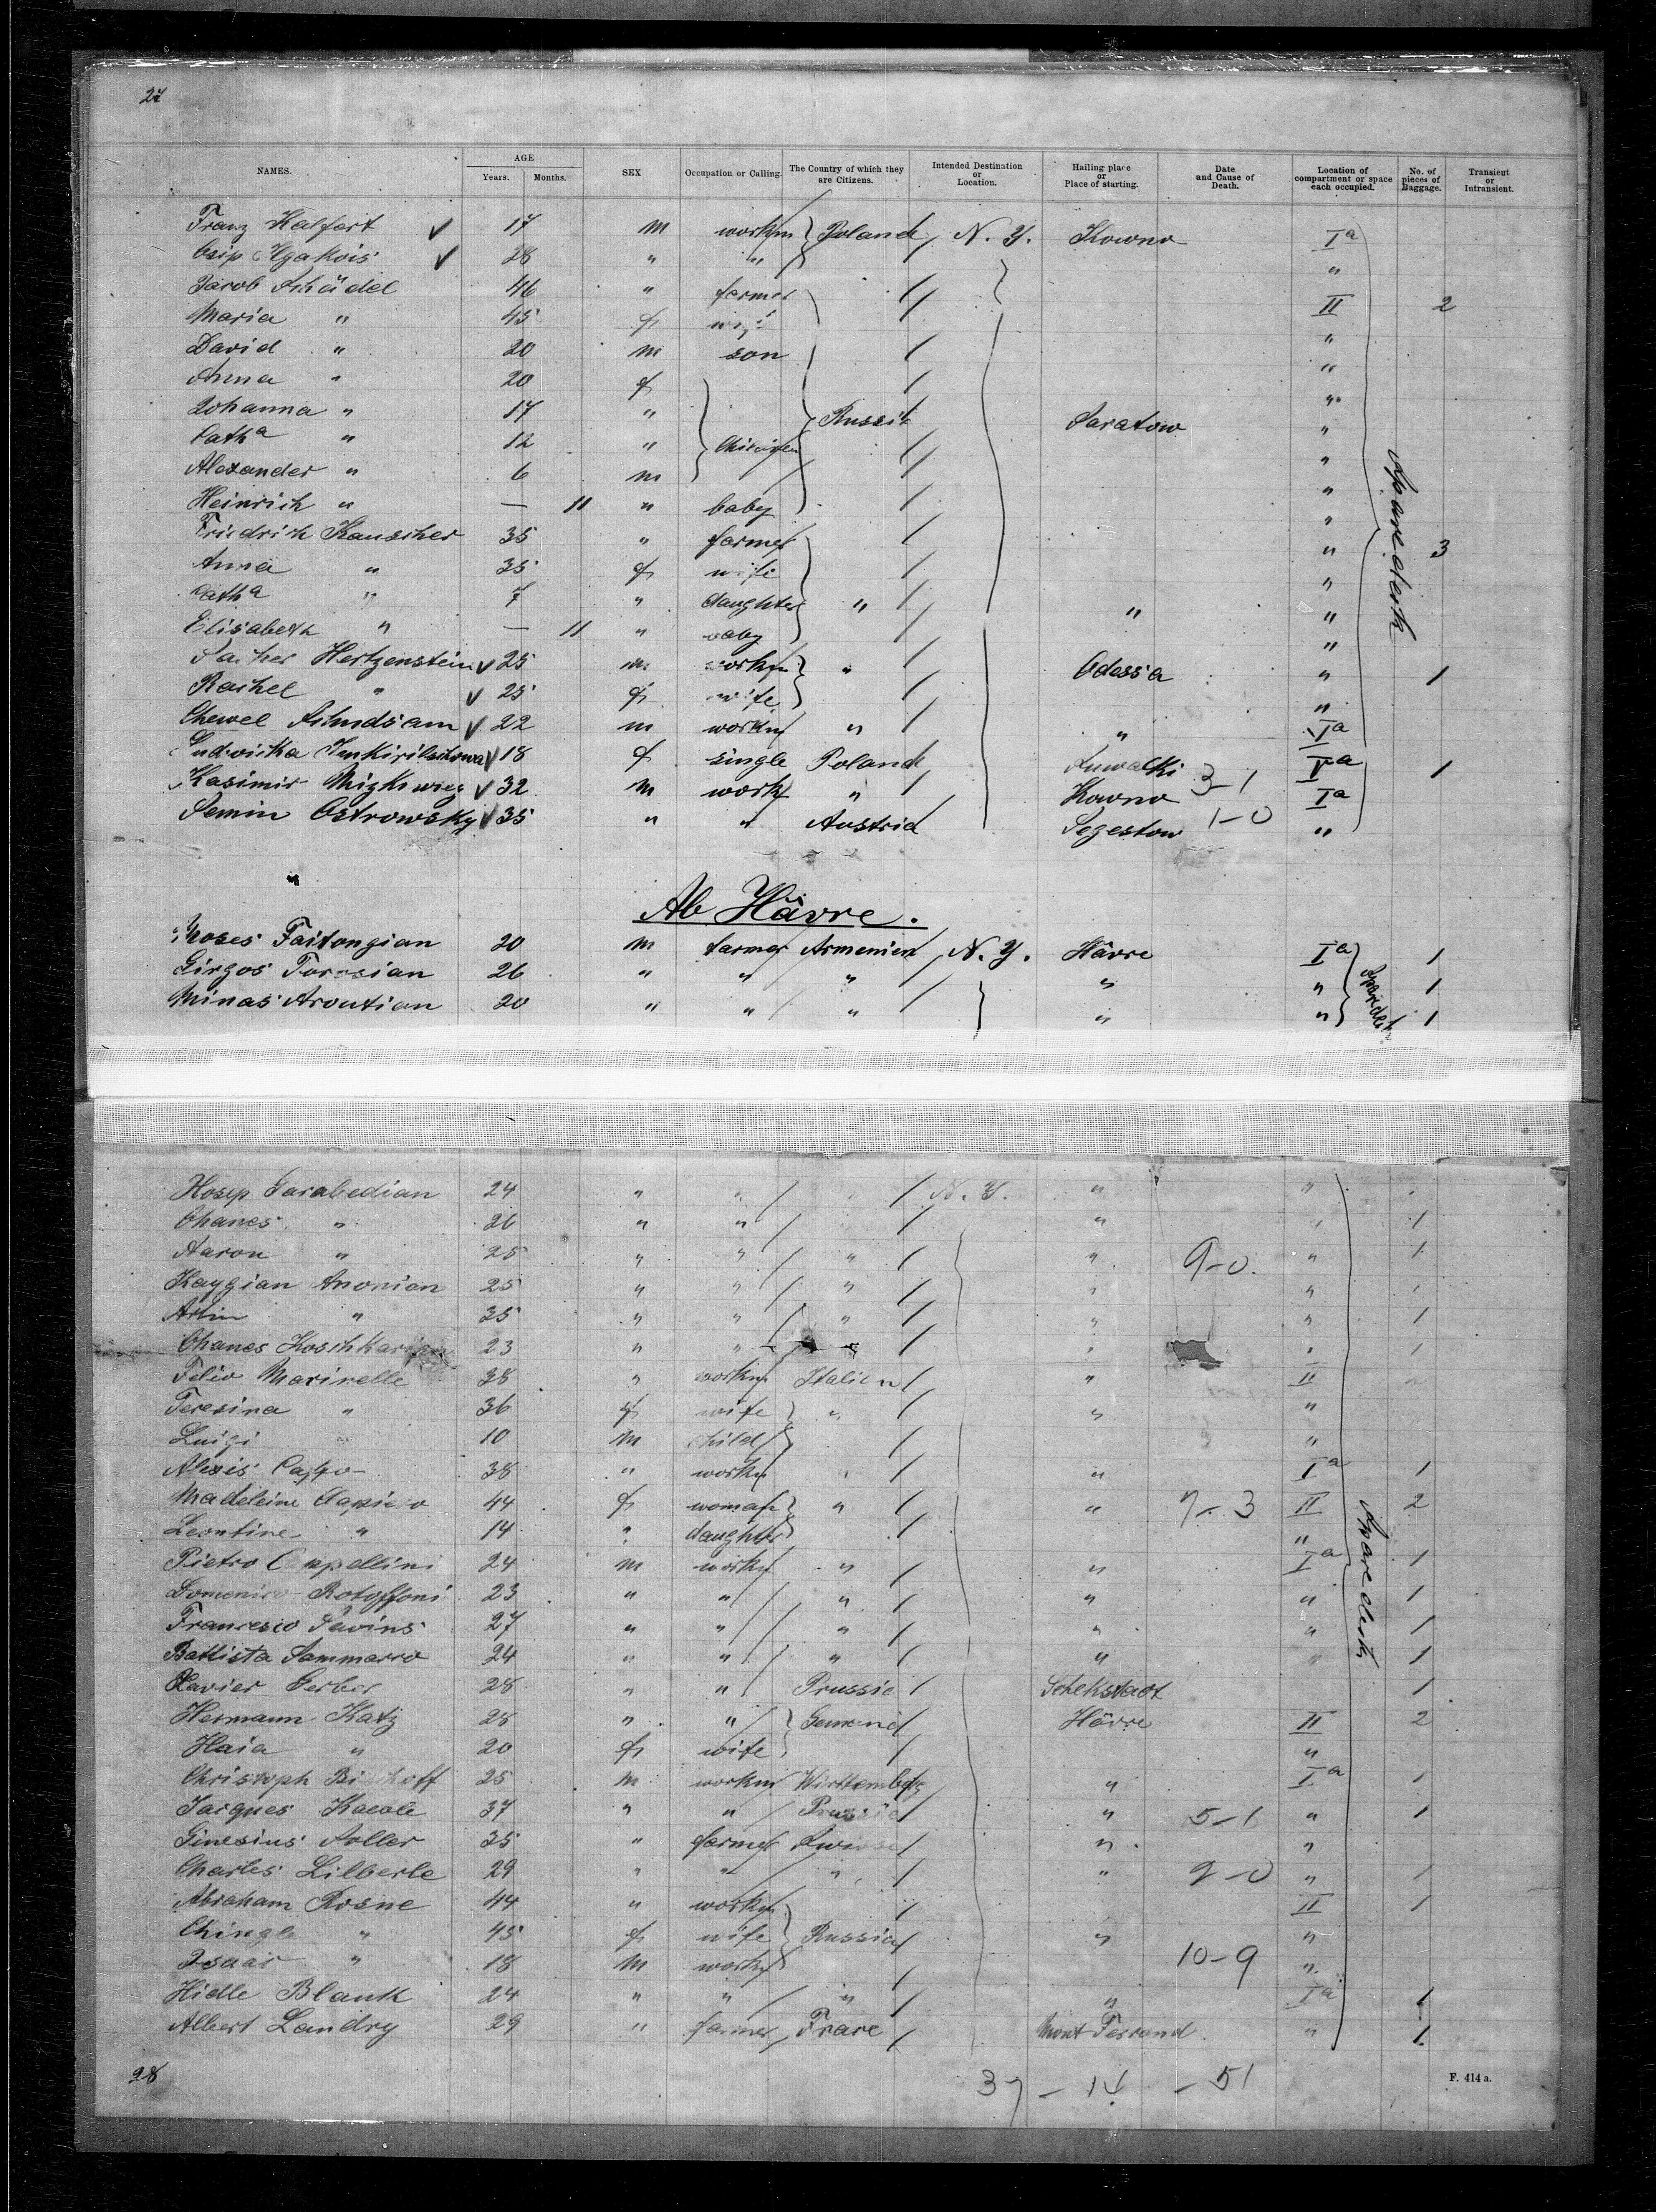 27
NAMES. AGE Years. Months. SEX Occupation or Calling. The Country of which they are Citizens. Intended Destination or Location. Hailing place or Place of starting. Date and Cause of Death. Location of compartment or space each occupied. No. of pieces of Baggage. Transient or Intransient.
Franz Kalfart 17 m workm Poland N. Y. Kowno Ia
Osip 28 " " "
Jacob Schädel 46 " farmer II 2
Maria " 45 f wife "
David " 20 m son "
Anna " 20 f "
Johanna " 17 " Russia Saratow "
Catha " 12 " Children "
Alexander " 6 m "
Heinrich " — 11 " baby "
Friedrich Kauscher 35 " farmer " 3
Anna " 35 f wife "
Catha " 7 " daughter " " "
Elisabeth " — 11 " baby "
Hertzenstein 25 m workm " Odessa " 1
Rachel " 25 f wife "
Chewel 22 m workm " " Ia
Ludwicka 18 f single Poland Suwalki Ia 1
Kasimir 32 m workm " Kowno 3-1 Ia
Semin Ostrowsky 35 " " Austria Segestow 1-0 "
Spare deck
Ab Hâvre.
Moses Faitongian 20 m farmer Armenien N. Y. Hâvre Ia 1
Girgos Torosian 26 " " " " " 1
Minas Aroutian 20 " " " " " 1
Sparedeck
Hosep Garabedian 24 " " " N. Y. " "
Ohanes " 26 " " " " 1
Aaron " 25 " " " " 9-0. " 1
Kaygian Anonian 25 " " " " "
Artin " 35 " " " " " 1
Ohanes 23 " " " " " 1
Felio Marinelle 38 " workm Italien " II
Teresina " 36 f wife " " "
Luigi " 10 m child "
Alexis 38 " workm " " Ia 1
Madeleine 44 f woman " " 7-3 II 2
Leontine " 14 " daughter "
Pietro Cappellini 24 m workm " " Ia 1
Domenico 23 " " " " " 1
Francesco 27 " " " " " 1
Battista Sammarro 24 " " " " " 1
Xavier Gerber 28 " " Prussia 1
Hermann Katz 28 " " Hâvre II 2
Haia " 20 f wife "
Christoph Bischoff 25 m workm Württemberg " Ia 1
Jacques 37 " " Prussia " 5-1 " 1
Ginesius 35 " farmer " "
Charles Lilberle 29 " " " " 9-0 " 1
Abraham Rosne 44 " workm II 1
45 f wife Russia " "
Isaac " 18 m workm 10-9 "
Hielle Blank 24 " " " " Ia 1
Albert Landry 29 " farmer Mont Ferrand " 1
Spare deck
28 37-14-51 F. 414 a.